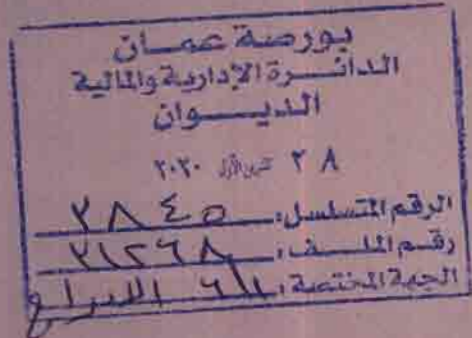 بورصة عمان
الدائرة الإدارية والمالية
الديوان
٢٨ تشرين الأول ٢٠٢٠
الرقم المتسلسل: ٣٨٤٥
رقم الملف:
الجهة المختصة: